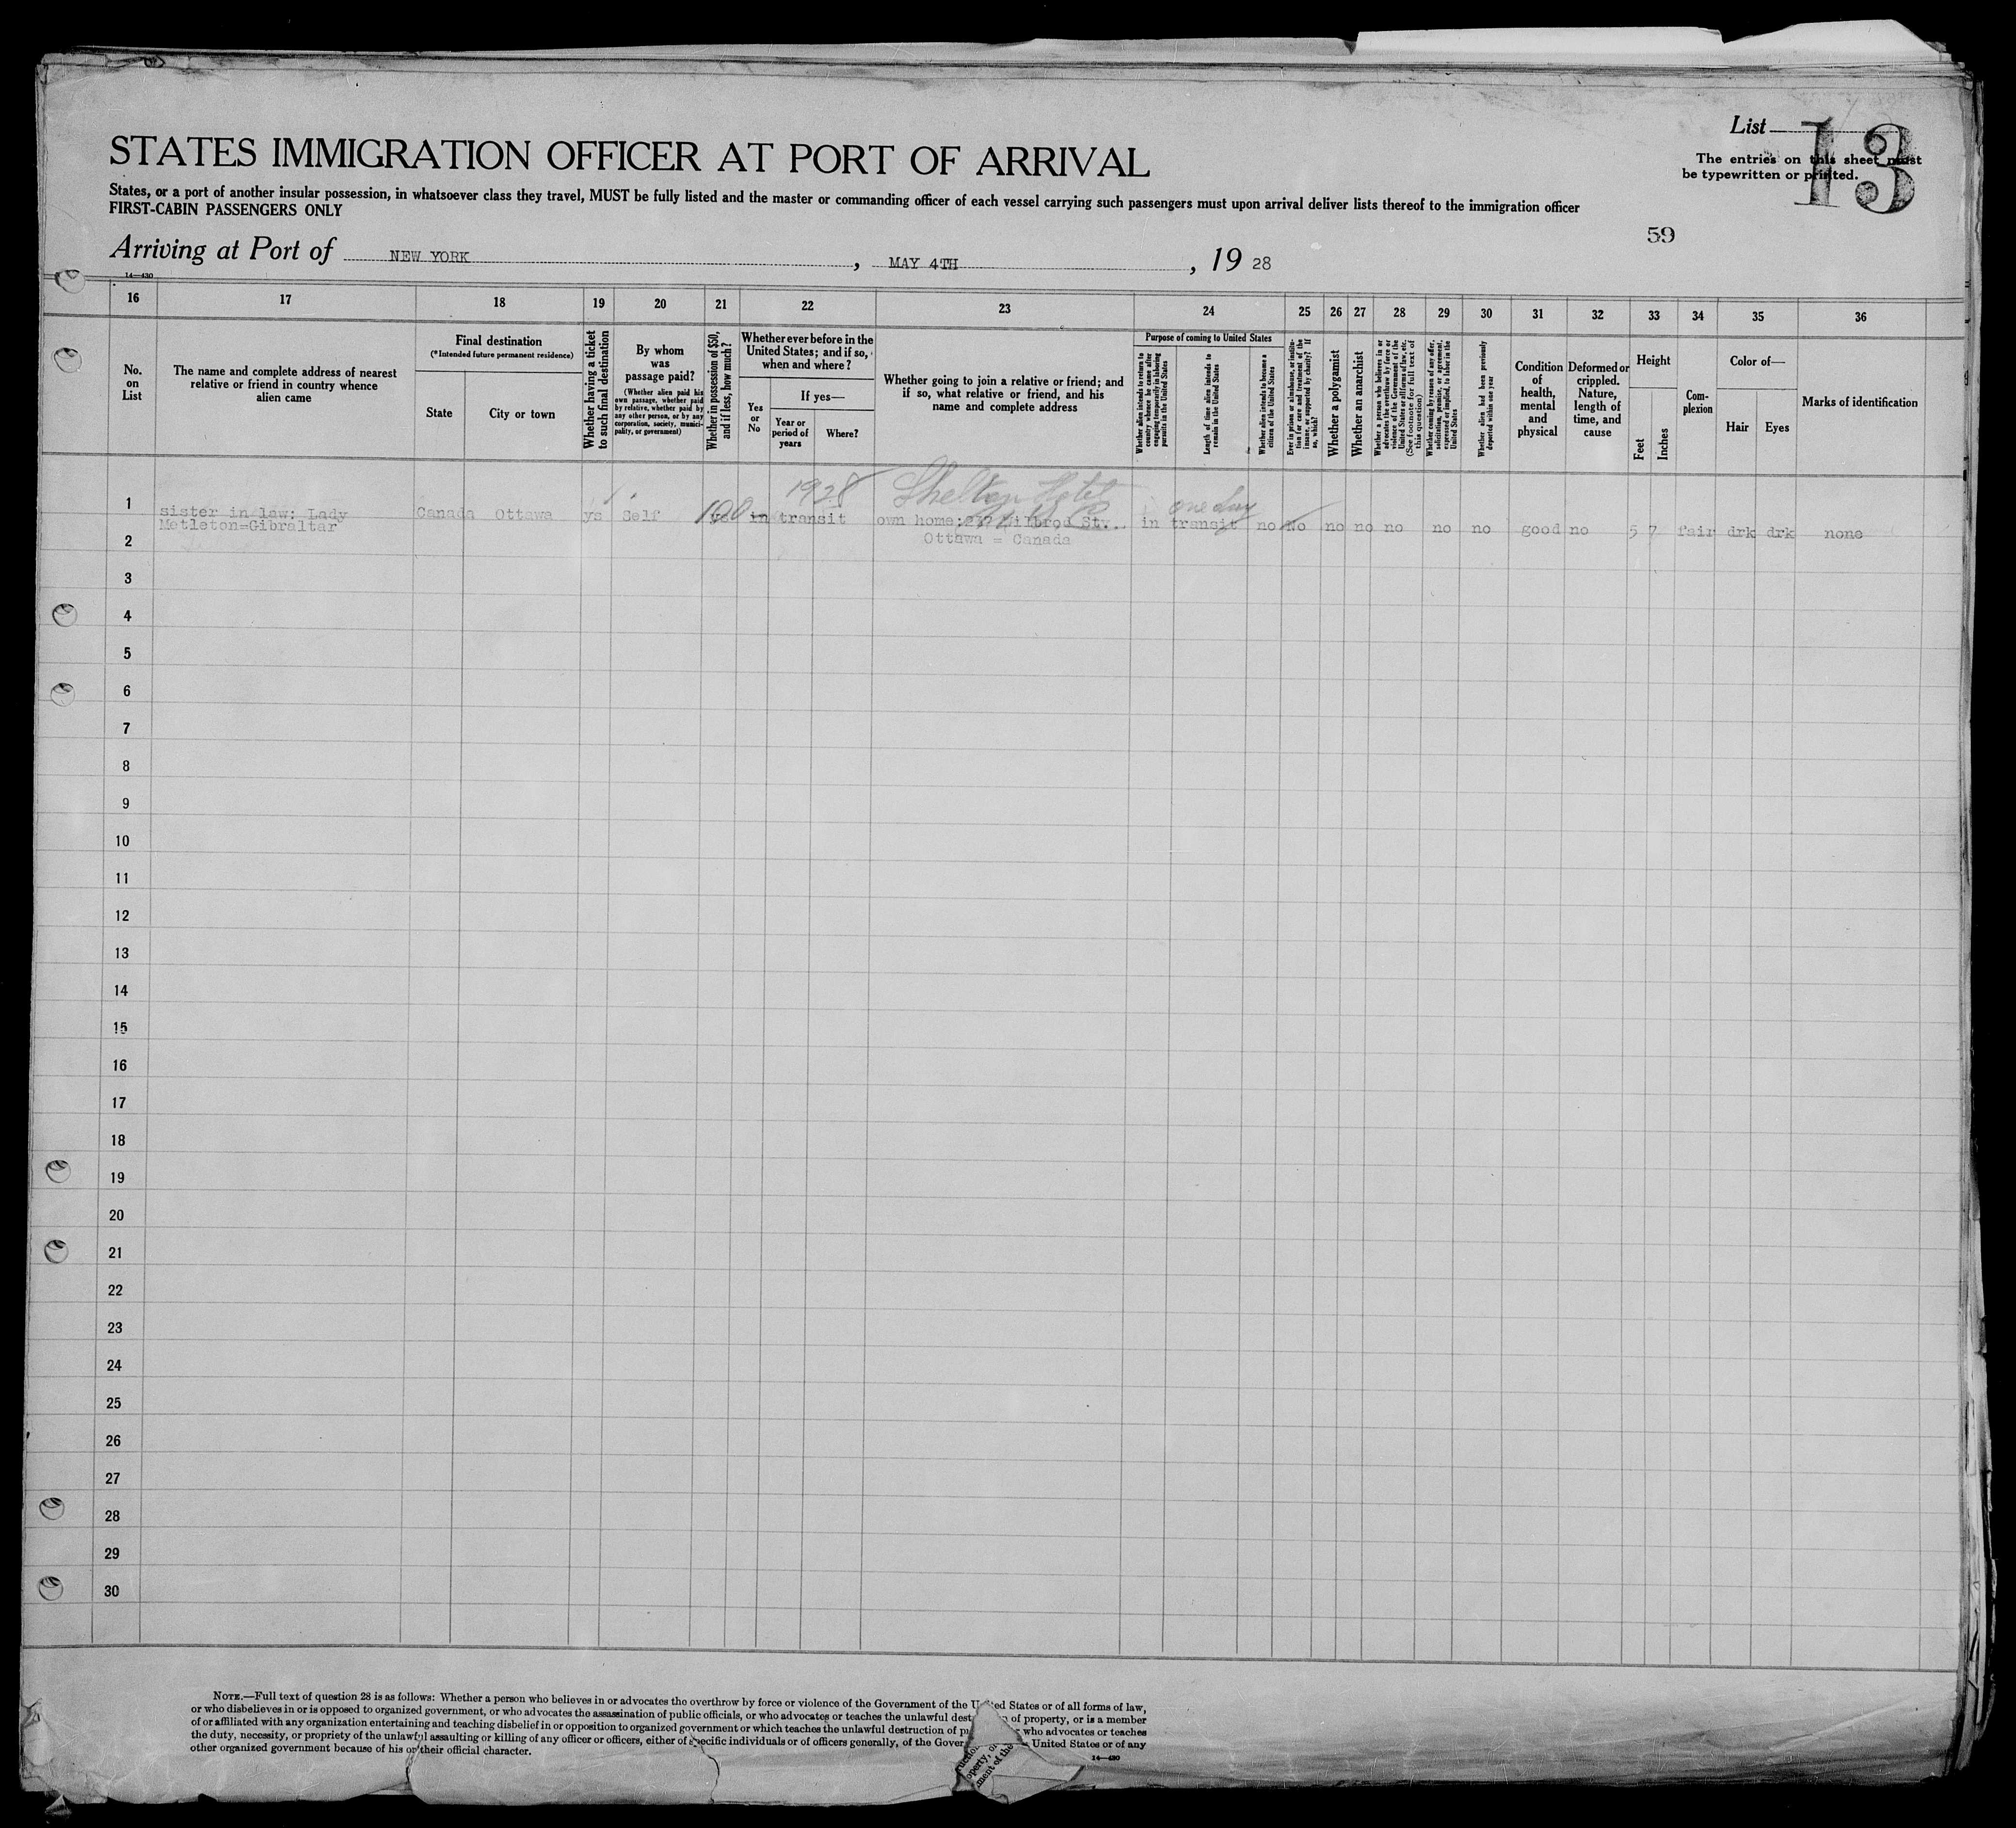 List
13
STATES IMMIGRATION OFFICER AT PORT OF ARRIVAL
The entries on this sheet must
be typewritten or printed.
States, or a port of another insular possession, in whatsoever class they travel, MUST be fully listed and the master or commanding officer of each vessel carrying such passengers must upon arrival deliver lists thereof to the immigration officer
FIRST-CABIN PASSENGERS ONLY
59
Arriving at Port of NEW YORK , MAY 4TH , 19 28
14—430
16 17 18 19 20 21 22 23 24 25 26 27 28 29 30 31 32 33 34 35 36
No. on List
The name and complete address of nearest relative or friend in country whence alien came
Final destination
(*Intended future permanent residence)
State
City or town
Whether having a ticket to such final destination
By whom was passage paid?
(Whether alien paid his own passage, whether paid by relative, whether paid by any other person, or by any corporation, society, municipality, or government)
Whether in possession of $50, and if less, how much?
Whether ever before in the United States; and if so, when and where?
Yes or No
If yes—
Year or period of years
Where?
Whether going to join a relative or friend; and if so, what relative or friend, and his name and complete address
Purpose of coming to United States
Whether alien intends to return to country whence he came after engaging temporarily in laboring pursuits in the United States
Length of time alien intends to remain in the United States
Whether alien intends to become a citizen of the United States
Ever in prison or almshouse, or institution for care and treatment of the insane, or supported by charity? If so, which?
Whether a polygamist
Whether an anarchist
Whether a person who believes in or advocates the overthrow by force or violence of the Government of the United States or all forms of law, etc. (See footnote for full text of this question)
Whether coming by reason of any offer, solicitation, promise, or agreement, expressed or implied, to labor in the United States
Whether alien had been previously deported within one year
Condition of health, mental and physical
Deformed or crippled. Nature, length of time, and cause
Height
Feet
Inches
Complexion
Color of—
Hair
Eyes
Marks of identification
1928 Shelton Hotel one day
1 sister in law: Lady Canada Ottawa ys Self ys 100 in transit own home: Wilbrod St. in transit no No no no no no no good no 5 7 fair drk drk none
Metleton=Gibraltar
2 Ottawa = Canada
3
4
5
6
7
8
9
10
11
12
13
14
15
16
17
18
19
20
21
22
23
24
25
26
27
28
29
30
NOTE.—Full text of question 28 is as follows: Whether a person who believes in or advocates the overthrow by force or violence of the Government of the United States or of all forms of law,
or who disbelieves in or is opposed to organized government, or who advocates the assassination of public officials, or who advocates or teaches the unlawful dest of property, or is a member
of or affiliated with any organization entertaining and teaching disbelief in or opposition to organized government or which teaches the unlawful destruction of pr who advocates or teaches
the duty, necessity, or propriety of the unlawful assaulting or killing of any officer or officers, either of specific individuals or of officers generally, of the Gover United States or of any
other organized government because of his or their official character.
14—430
operty, or
ment of the